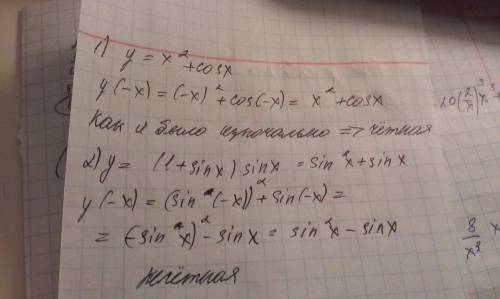 1) y = x² + cosx
y(-x) = (-x)² + cos(-x) = x² + cosx
Как и было изначально => чётная
2) y = (1 + sinx) sinx = sin²x + sinx
y(-x) = (sin (-x))² + sin(-x) =
= (-sin x)² - sinx = sin²x - sinx
нечётная
20(2/x)³x³
8/x³ x